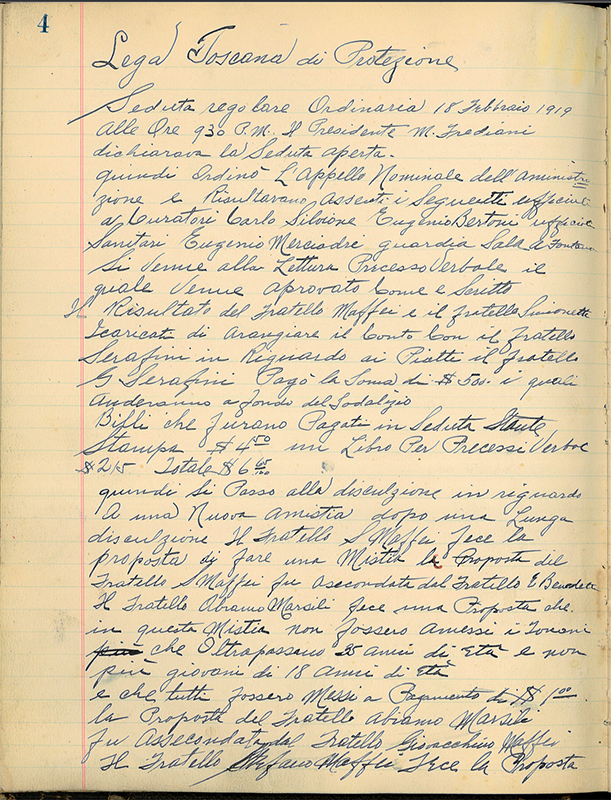 4
Lega Toscana di Protezione
Seduta regolare Ordinaria 18 Febbraio 1919
Alle Ore 930 P.M. Il Presidente M. Frediani
dichiarava la Seduta aperta.
quindi Ordinò L'Appello Nominale dell'Aministra
zione e Risultavano Assenti i Seguenti ufficiali
Curatori Carlo Silvione Eugenio Bertoni ufficiale
Sanitari Eugenio Mercadre guardia Sala
Si Venne alla Lettura Precesso Verbale il
quale Venne aprovato Come e Scritto
Il Risultato del Fratello Maffei e il fratello Simonetti
Icaricati di Arangiare il Conto Con il fratello
Serafini in Riguardo ai Piatti il fratello
G Serafini Pagò la Soma di $ 500. i quali
Anderanno a fondo del Sodalizio
Billi che furano Pagati in Seduta Stante
Stampa $ 4 50 un Libro Per Precessi Verbale
$ 2 15 Totale $ 6 65/100
quindi Si Passo alla disculzione in riguardo
A una Nuova amistia dopo una Lunga
disculzione Il Fratello S Maffei fece la
proposta di fare una Mistia la Proposta del
Fratello S Maffei fu Asecondata dal Fratello E Benedetti
Il Fratello Abramo Marsili fece una Proposta che
in questa Mistia non fossero Amessi i Toscani
più che Oltrapassano 35 anni di Età e non
più giovani di 18 Anni di Età
e che tutti fossero Messi a Pagamento di $ 1 00
la Proposta del Fratello Abiamo Marsili
fu Assecondata dal Fratello Gioacchino Maffei
Il Fratello Stefano Maffei Fece la Proposta